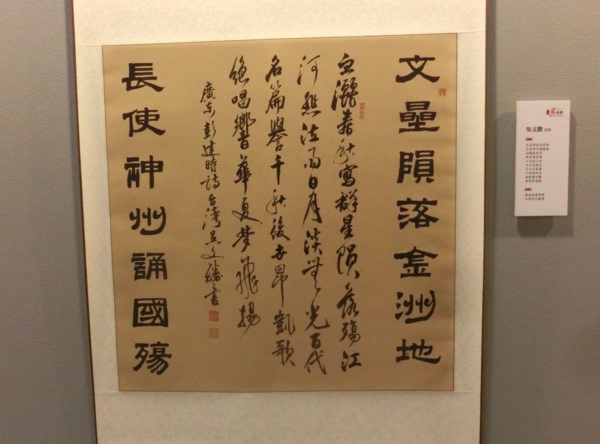 文星隕落金洲地
血灑春秋寫群星隕落殤江
河悲泣雨日月淡無光百代
名篇譽千秋後世昂凱歌
絕唱響華夏夢飛揚
廣東彭建時詩台灣吳文勝書
長使神州誦國殤
吳文勝